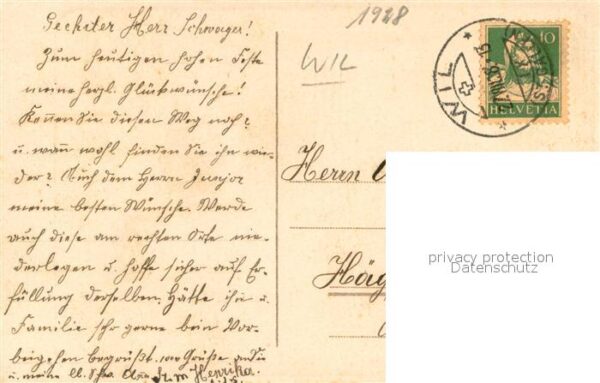 Geehrter Herr Schwager!
Zum heutigen hohen Feste
meine herzl. Glückwünsche!
Kennen Sie diesen Weg noch?
u. wann wohl finden Sie ihn wie-
der? Auch dem Herrn Junior
meine besten Wünsche. Werde
auch diese am rechten Orte nie-
derlegen u. hoffe sicher auf Er-
füllung derselben. Hätte ihn u.
Familie sehr gerne bein Vor-
beigehen begrüßt. Grüße an Sie
u. meine lb.
Henrika
1928
WIL
WIL
10
HELVETIA
Herrn
Häg
privacy protection
Datenschutz